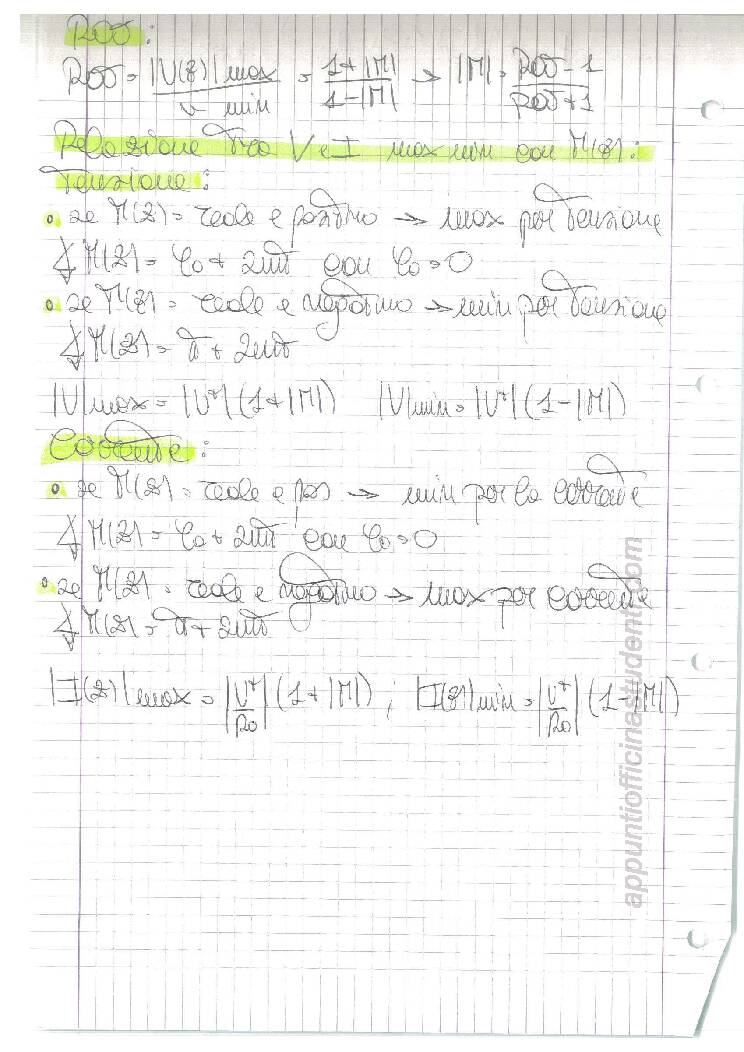 ROS:
ROS = |V(z)| max / V min = 1+|Γ| / 1-|Γ| → |Γ| = ROS-1 / ROS+1
Relazione tra V e I max min con Γ(z):
Tensione:
• se Γ(z) = reale e positivo → max per tensione
∡ Γ(z) = φ0 + 2nπ con φ0 = 0
• se Γ(z) = reale e negativo → min per tensione
∡ Γ(z) = π + 2nπ
|V| max = |V⁺| (1+|Γ|) |V| min = |V⁺| (1-|Γ|)
Corrente:
• se Γ(z) = reale e pos → min per la corrente
∡ Γ(z) = φ0 + 2nπ con φ0 = 0
• se Γ(z) = reale e negativo → max per corrente
∡ Γ(z) = π + 2nπ
|I(z)| max = |V⁺/R0| (1+|Γ|) ; |I(z)| min = |V⁺/R0| (1-|Γ|)
appuntiofficinastudenti.com